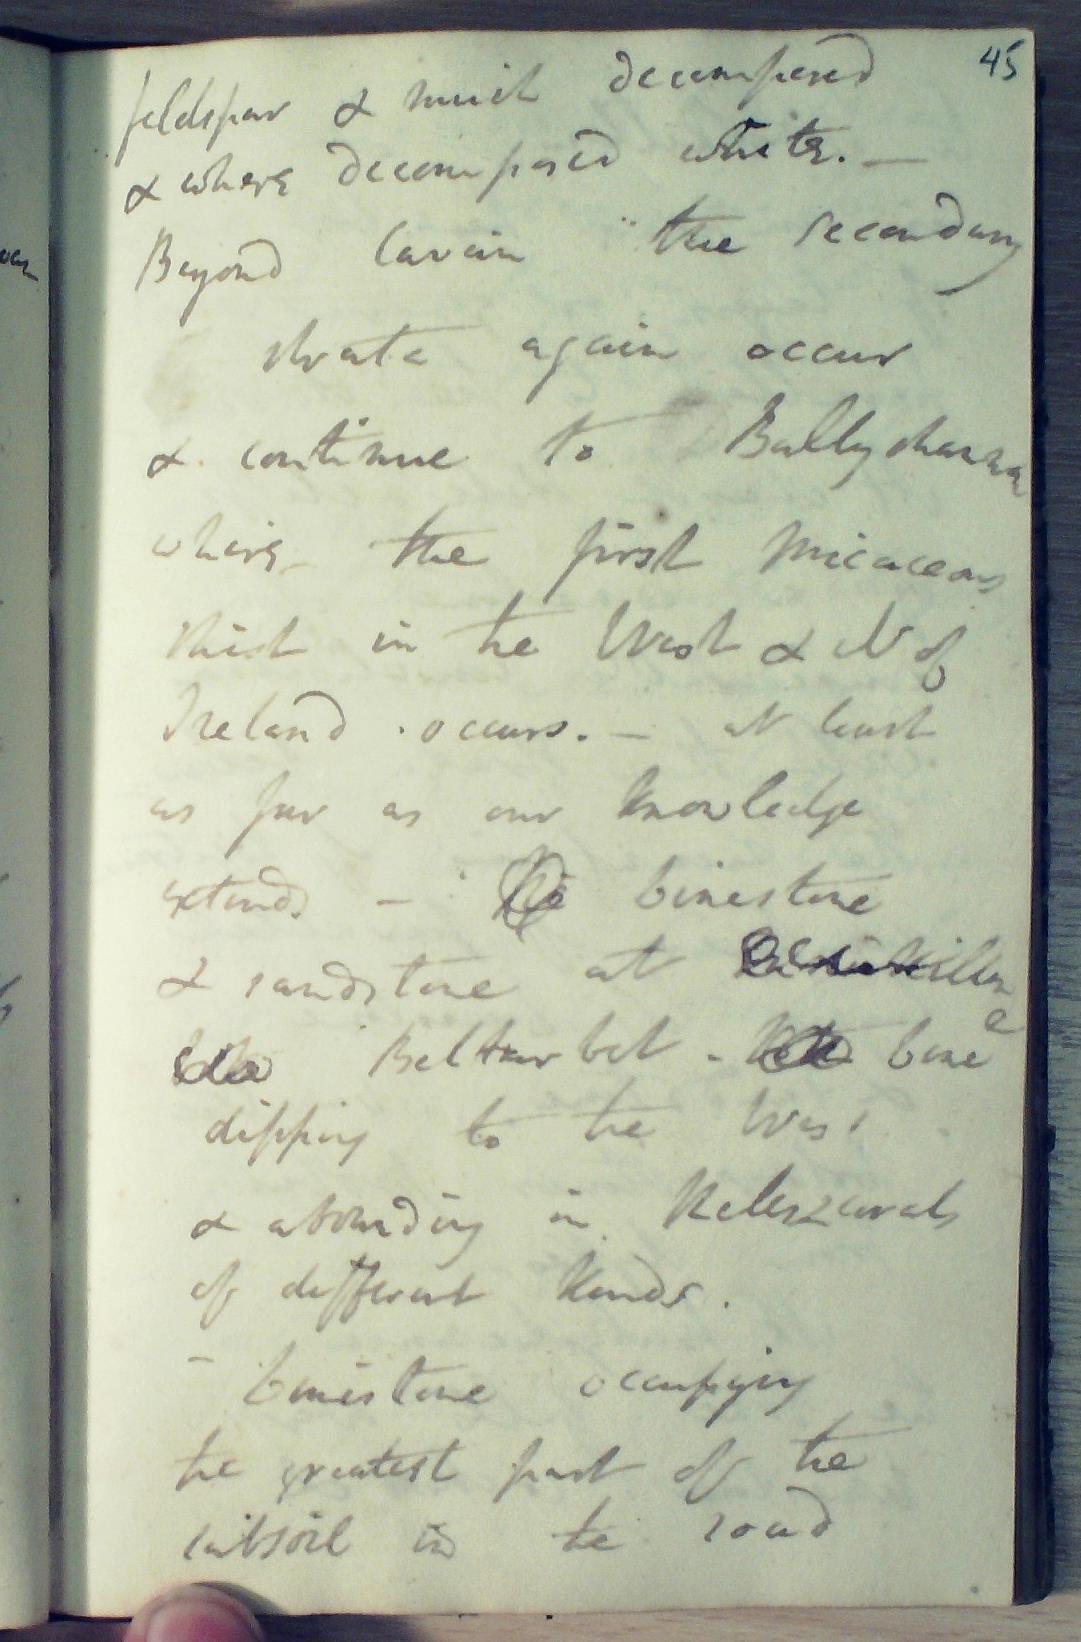 45
feldspar & much decomposed
& where decomposed white. —
Beyond Cavan the secondary
strata again occur
& continue to Ballyshanna
where the first micaceous
shist in the West & N of
Ireland occurs. — at least
as far as our knowledge
extends — limestone
& sandstone at
Belturbet - lime
dipping to the West
& abounding in
of different kinds.
- limestone occupying
the greatest part of the
subsoil in the road